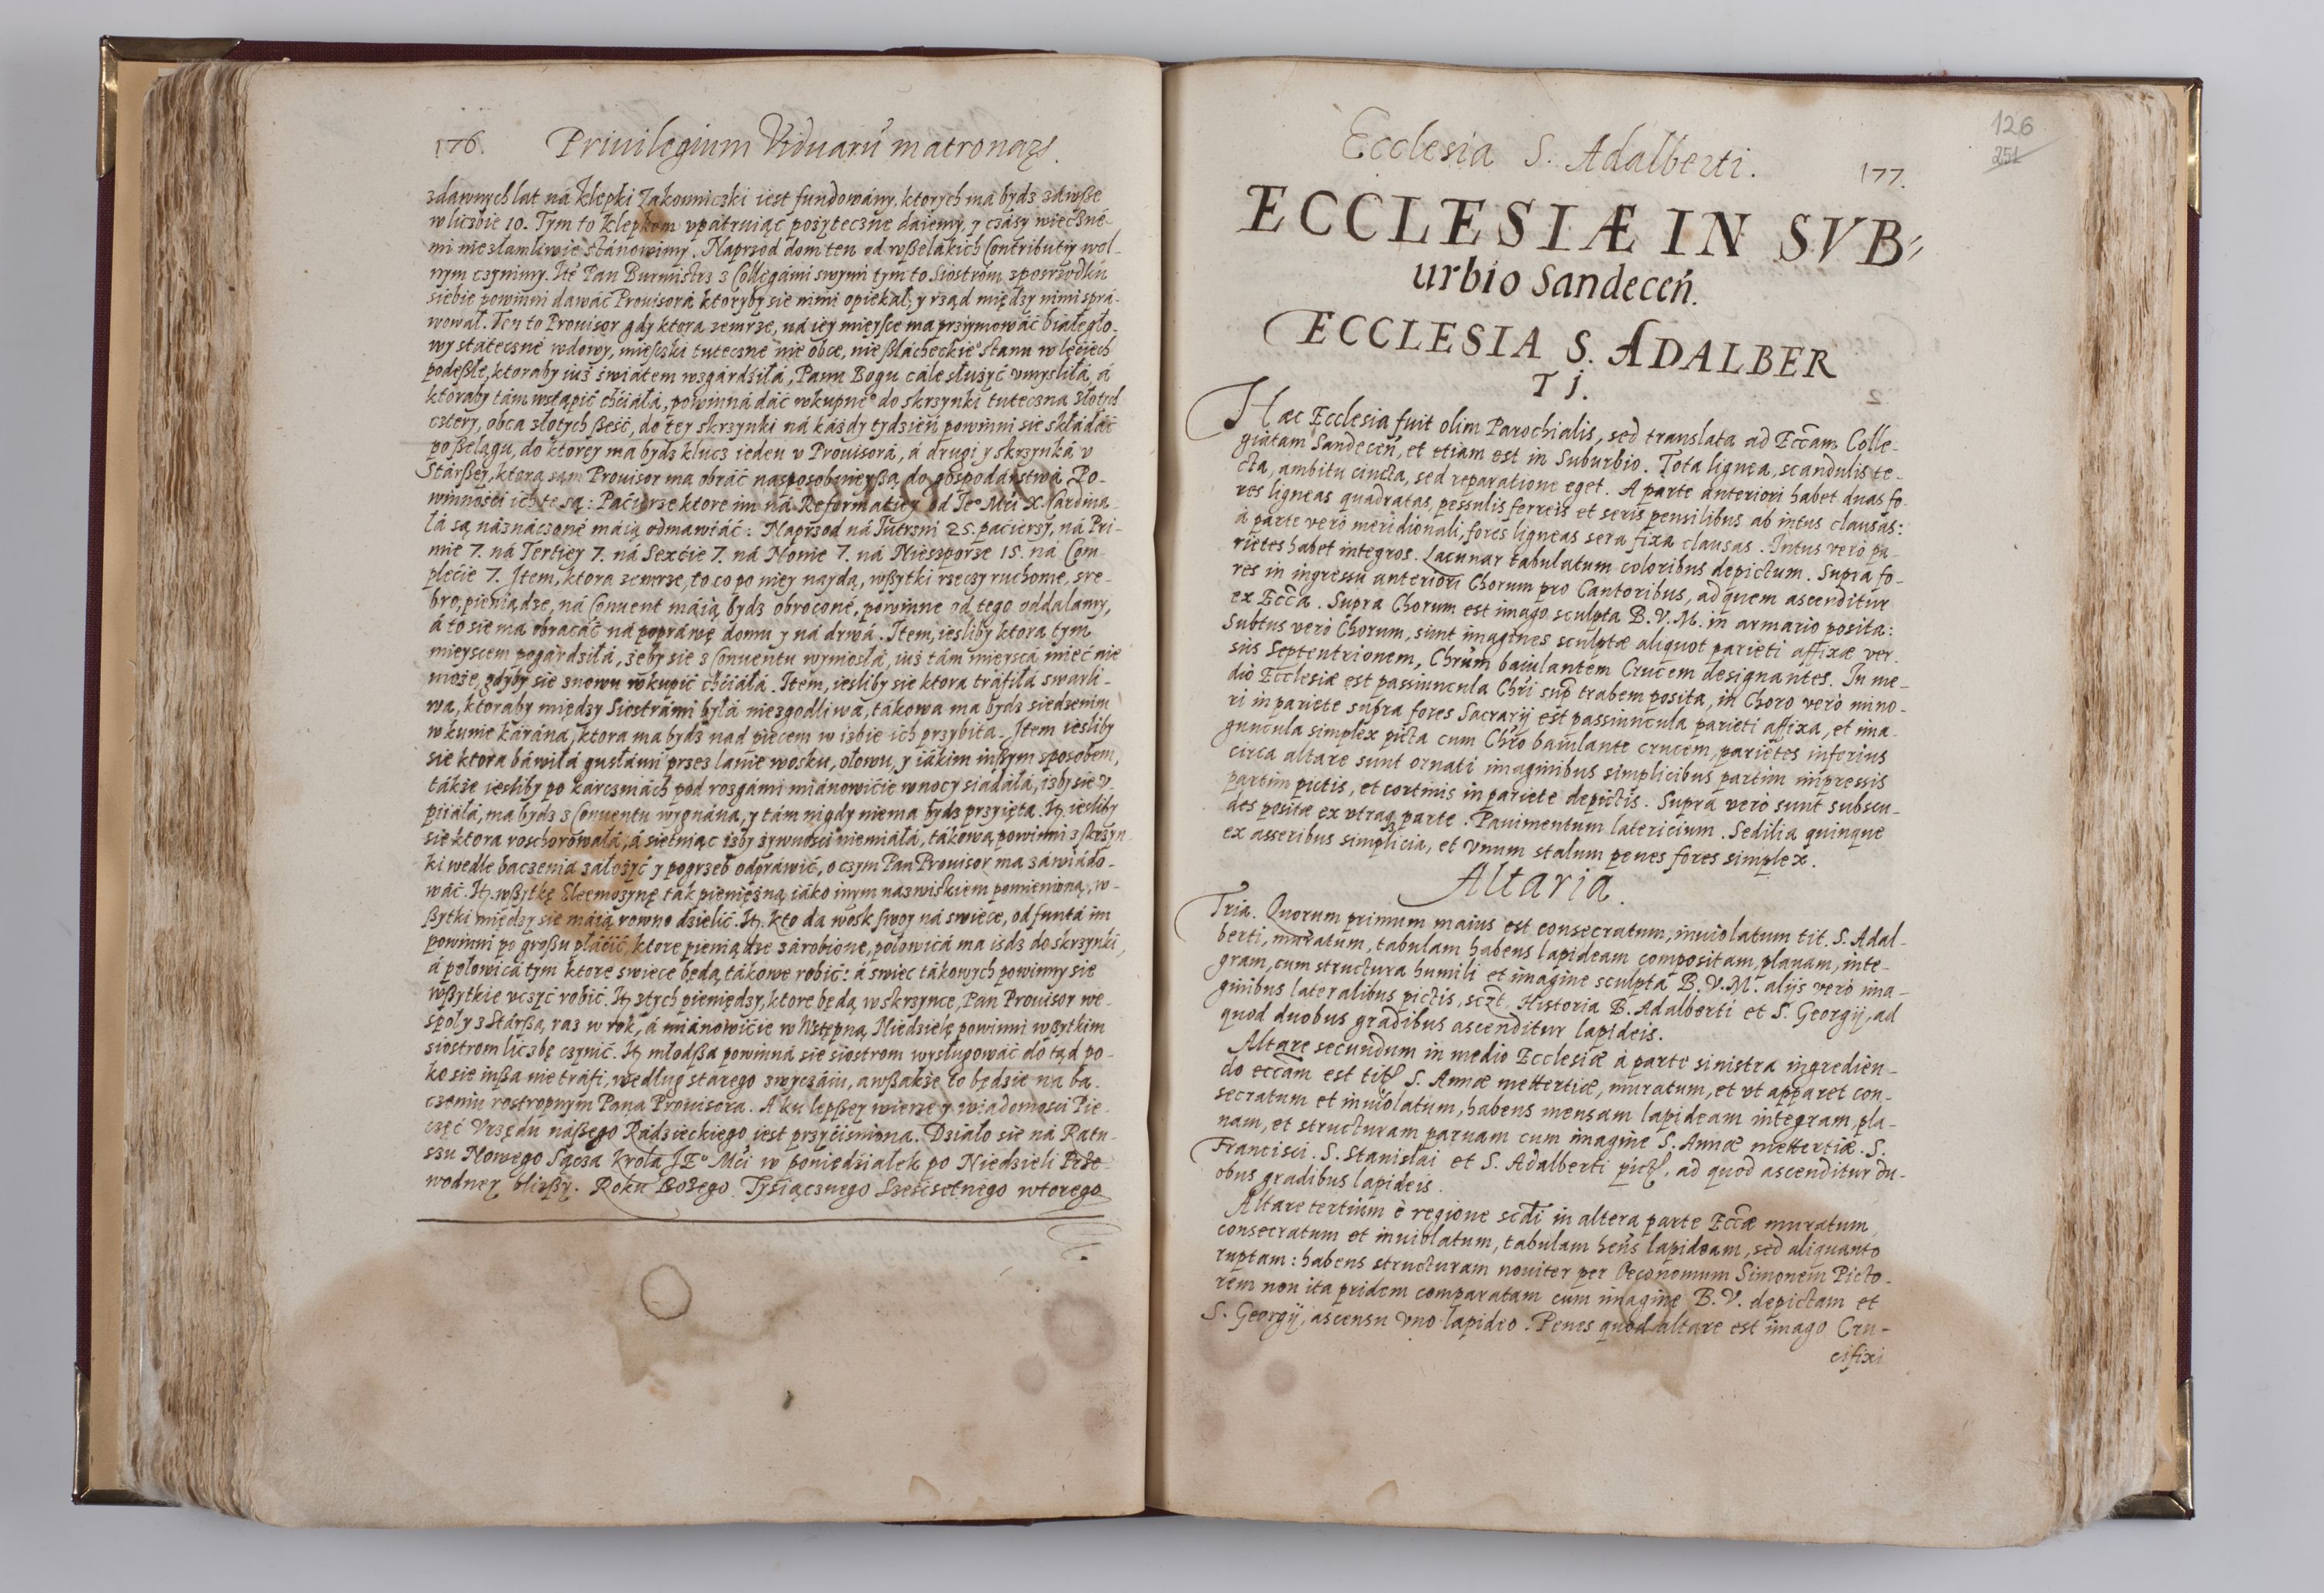 176. Priuilegium Viduarũ matronaꝝ.
zdawnych lat ná klepki Zakonniczki iest fundowány. ktorych má bydz záwße
w liczbie 10. Tym to klepkom vpátruiąc pożyteczne dáiemy, y czásy wieczné-
mi niezłamliwie stánowimy. Naprzod dom ten od wßelákich Contributiy wol-
nym czynimy. Ite Pan Burmistrz z Collegámi swymi tym to Siostrom zposrzodku
siebie powinni dáwáć Prouisorá ktoryby sie nimi opiekał, y rząd między nimi sprá-
wował. Ten to Prouisor gdy ktora zemrze, ná iey mieysce ma przymowáć białegło-
wy stateczné wdowy, mieszki tuteczne nie obce, nie ßlácheckie° stanu w leciech
podeßłe, ktoraby iuż światem wzgárdziłá, Panu Bogu cále służyć vmysliłá, á
ktoraby tám wstąpić chciáłá, powinná dáć wkupne° do skrzynki tuteczna złotych
cztery, obca złotych ßesć, do tey skrzynki ná káżdy tydzień powinni sie składáć
po ßelągu, do ktorey ma bydz klucz ieden v Prouisorá, á drugi y skrzynká v
Stárßey, ktorą sam Prouisor ma obráć nasposobnieyßą do gospodárstwá Po-
winności ich te są: Paćierze ktore im ná Reformatiey od Je° Mći X. Cardiná-
łá są náznáczoné máią odmawiáć: Naprzod ná Jutrzni 25. pacierzy, ná Pri-
mie 7. ná Tertiey 7. ná Sexćie 7. ná Nonie 7. ná Nieszporze 15. na Com-
plećie 7. Item, ktora zemrze, to co po niey naydą, wßytki rzeczy ruchome, sre-
bro, pieniądze, ná Conuent máią bydz obroconé, powinne od tego oddalamy,
á to sie ma obracáć ná popráwę domu y ná drwá. Item, iesliby ktora tym
mieyscem pogárdziłá, żeby sie z Conuentu wyniosłá, iuż tám mieyscá mieć nie
może, gdyby sie znowu wkupić chciáłá. Item, iesliby sie ktora tráfiłá swarli-
wa, ktoraby między Siostrámi byłá niezgodliwá, tákowa ma bydz siedzeniu
w kunie kárána, ktora ma bydz nad piecem w izbie ich przybita. Item iesliby
sie ktora báwiłá gusłámi przez lanie wosku, ołowu, y iákim inßym sposobem,
tákże iesliby po kárczmách pod rozgámi miánowićie w nocy siadáłá, izby sie v-
piiáłá, ma bydz z Conuentu wygnána, y tám nigdy niema bydz przyięta. Iꝫ iesliby
sie ktora roschorowałá, á sietniąc izby żywnosci niemiáłá, tákową powinni z skrzyn
ki wedle baczenia záłożyć y pogrzeb odpráwić, o czym Pan Prouisor ma záwiádo-
wáć. Iꝫ wßytkę Eleemozynę ták pienięzną iáko inym nazwiskiem pomienioną, w-
ßytki między sie máią rowno dzielić. Iꝫ kto da wosk swoy ná swiece, od funtá im
powinni po großu płáćić, ktore pieniądze zárobione, połowicá ma isdz do skrzynki,
á połowicá tym ktore swiece będą tákowe robić: á swiec tákowych powinny sie
wßytkie vczyć robić. Iꝫ z tych pieniędzy, ktore będą w skrzynce, Pan Prouisor we-
społy z Stárßą, raz w rok, á miánowićie w Wstępną Niedzielę powinni wßytkim
siostrom liczbę czynić. Iꝫ młodßa powinná sie siostrom wysługowáć do tąd po-
ko sie inßa nie tráfi, według stárego zwyczáiu, a wßákże to będzie na ba-
czeniu rostropnym Pana Prouisora. A ku lepßey wierze y wiadomosci Pie-
częć Vrzędu náßego Rádzieckiego iest przyćisniona. Działo sie ná Ratu-
szu Nowego Sącza Krola JE° Mći w poniedźiałek po Niedzieli Prze-
wodney blizßy. Roku Bożego. Tyśiącznego Szesćsetnego wtorego
Ecclesia S. Adalberti. 177.
126
251
ECCLESIÆ IN SVB-
urbio Sandeceñ.
ECCLESIA S. ADALBER
TJ.
Hæc Ecclesia fuit olim Parochialis, sed translata ad Eccam Colle-
giatam Sandeceñ, et etiam est in Suburbio. Tota lignea, scandulis te-
cta, ambitu cincta, sed reparatione eget. A parte anteriori habet duas fo-
res ligneas quadratas, pessulis ferreis et seris pensilibus ab intus clausas:
à parte verò meridionali, fores ligneas sera fixa clausas. Intus verò pa-
rietes habet integros. Lacunar tabulatum coloribus depictum. Supra fo-
res in ingressu anteriori Chorum pro Cantoribus, ad quem ascenditur
ex Ecca. Supra Chorum est imago sculpta B.V.M. in armario posita:
Subtus verò Chorum, sunt imagines sculptæ aliquot parieti affixæ ver-
sus Septentrionem, Chrũm baiulantem Crucem designantes. In me-
dio Ecclesiæ est passiuncula Chri sup trabem posita, in Choro verò mino-
ri in pariete supra fores Sacrarij est passiuncula parieti affixa, et ima-
guncula simplex picta cum Chro baiulante crucem, parietes inferius
circa altare sunt ornati imaginibus simplicibus partim impressis
partim pictis, et cortinis in pariete depictis. Supra verò sunt subscu-
des positæ ex vtraq parte. Pauimentum latericium. Sedilia quinque
ex asseribus simplicia, et vnum stalum penes fores simplex.
Altaria.
Tria. Quorum primum maius est consecratum, inuiolatum tit. S. Adal-
berti, muratum, tabulam habens lapideam compositam, planam, inte-
gram, cum structura humili et imagine sculpta B.V.M. alijs verò ima-
ginibus lateralibus pictis, sczt Historia B. Adalberti et S. Georgij, ad
quod duobus gradibus ascenditur lapideis.
Altare secundum in medio Ecclesiæ à parte sinistra ingredien-
do eccam est titꝭ S. Annæ mettertiæ, muratum, et vt apparet con-
secratum et inuiolatum, habens mensam lapideam integram, pla-
nam, et structuram paruam cum imagine S. Annæ mettertiæ. S.
Francisci. S. Stanislai et S. Adalberti pictꝭ, ad quod ascenditur du-
obus gradibus lapideis.
Altare tertium è regione scdi in altera parte Eccæ muratum,
consecratum et inuiolatum, tabulam hens lapideam, sed aliquanto
ruptam: habens structuram nouiter per Oeconomum Simonem Picto-
rem non ita pridem comparatam cum imagine B.V. depictam et
S. Georgij, ascensu vno lapideo. Penes quod altare est imago Cru-
cifixi